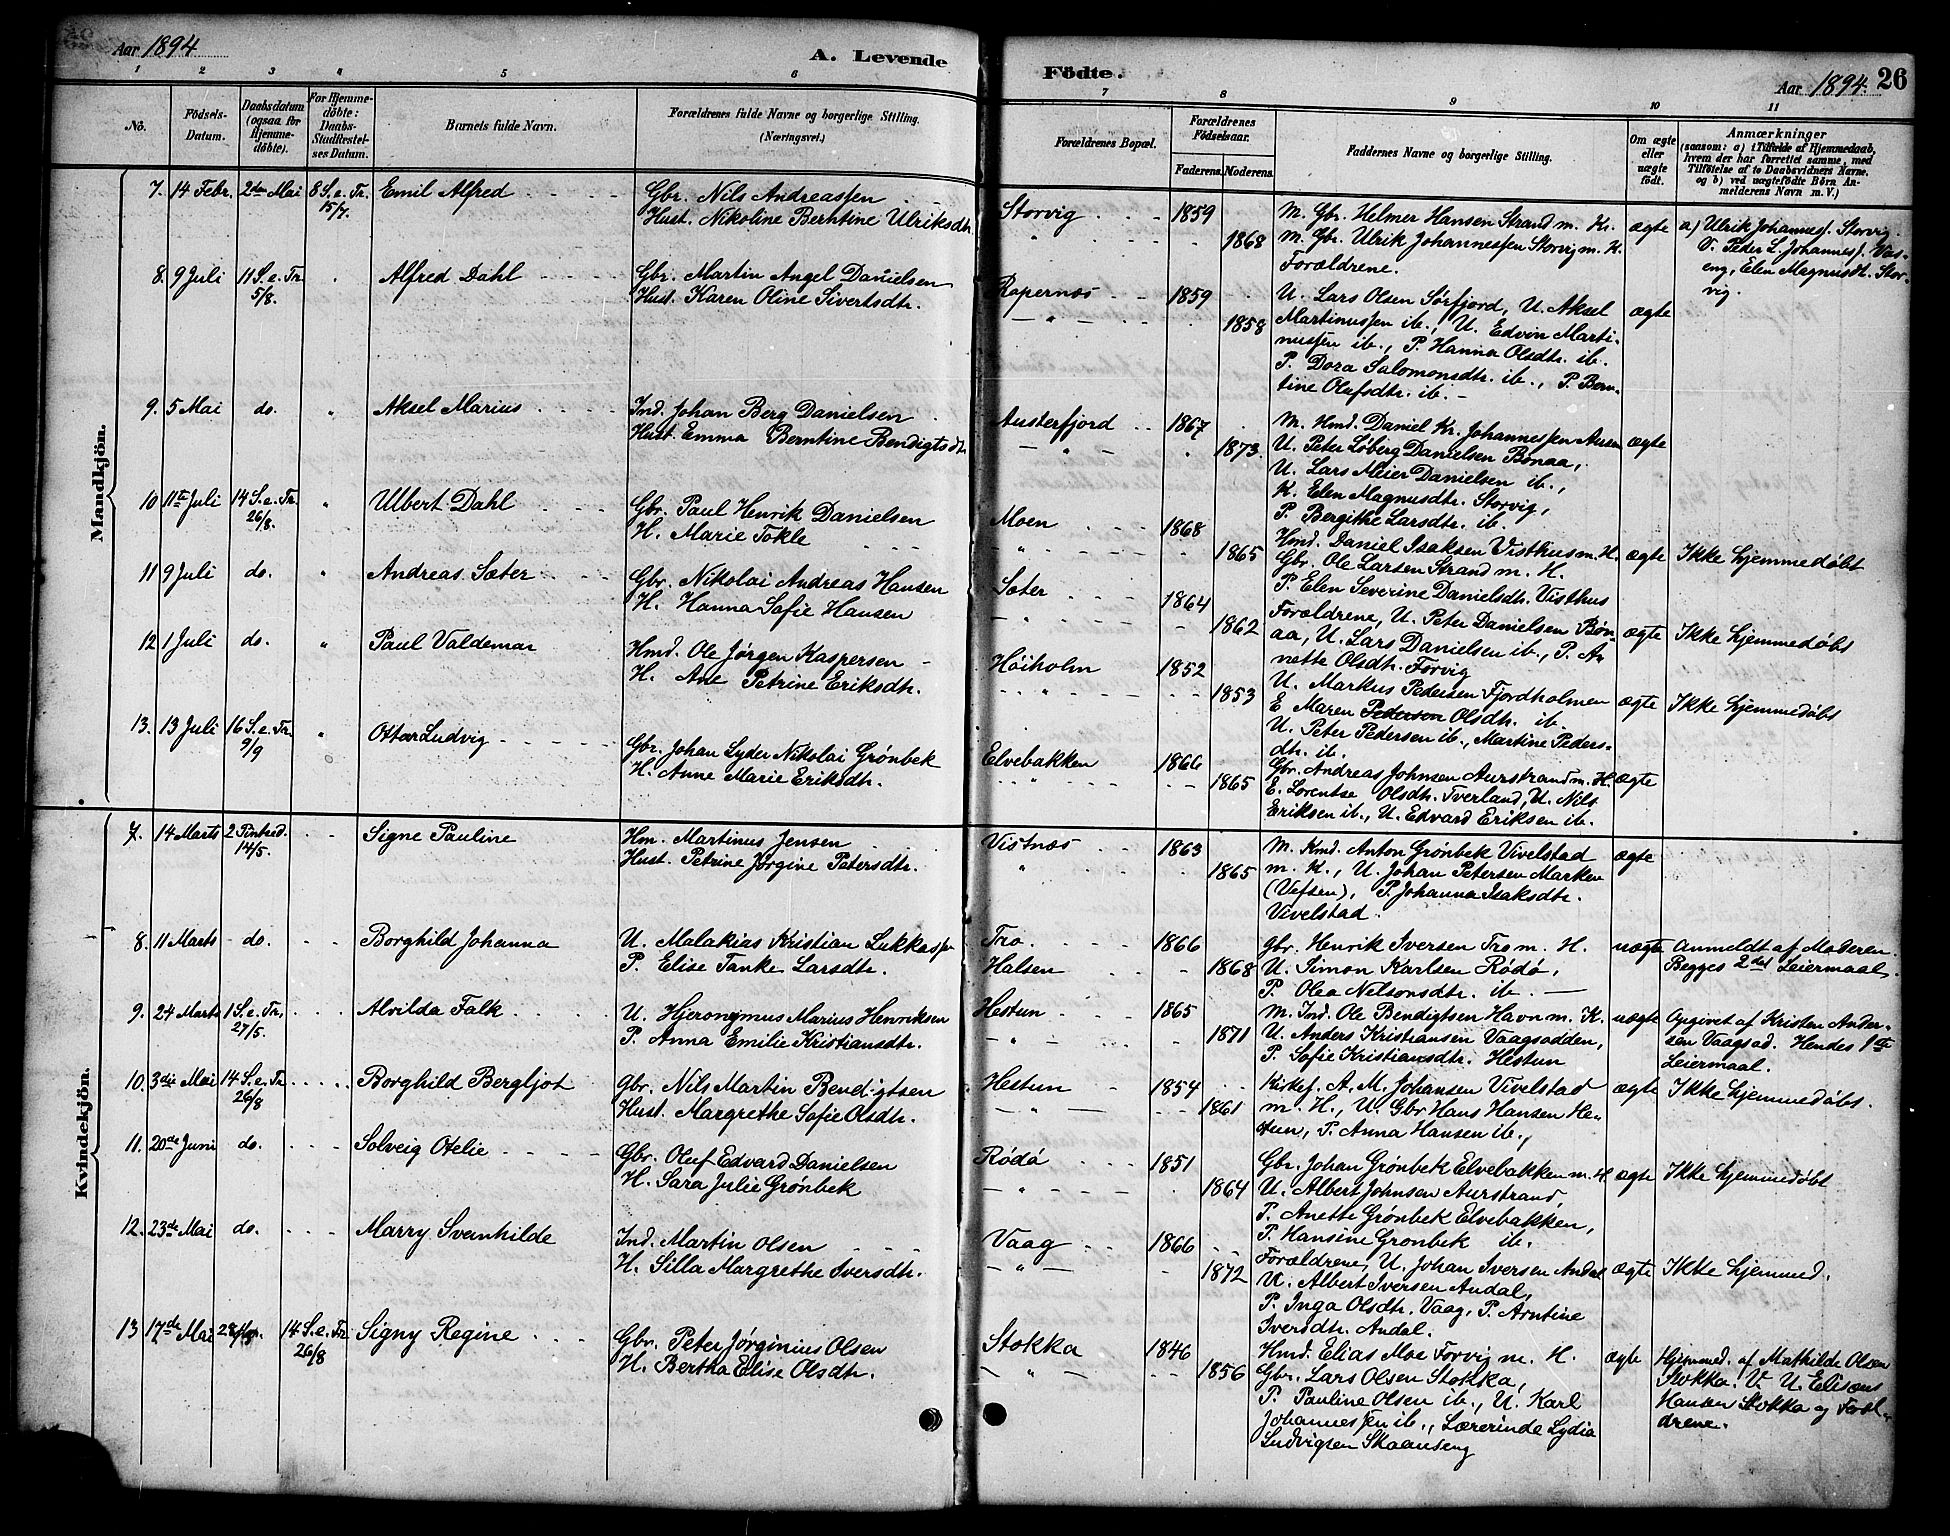 Aar 1894
A. Levende
Födte.
Aar 1894. 26
1 2 3 4 5 6 7 8 9 10 11
No.
Födsels-
Datum.
Daabsdatum
(ogsaa for
Hjemme-
döbte).
For Hjemme-
döbte:
Daabs-
Stadfæstel-
ses Datum.
Barnets fulde Navn.
Forældrenes fulde Navne og borgerlige Stilling.
(Næringsvei.)
Forældrenes Bopæl.
Forældrenes
Födselsaar.
Faderens. Moderens.
Faddernes Navne og borgerlige Stilling.
Om ægte
eller
uægte
födt.
Anmærkninger
(saasom: a) i Tilfælde af Hjemmedaab,
hvem der har forrettet samme, med
Tilföielse af to Daabsvidners Navne.
og b) ved uægtefödte Börn An-
melderens Navn m. V.)
Mandkjön.
7. 14 Febr. 2den Mai 8 S. e. Tr. 15/7. Emil Alfred
Gbr. Nils Andreassen
Hust. Nikoline Berntine Ulriksdtr.
Storvig 1859
" 1868
M. Gbr. Helmer Hansen Strand m. K.
M. Gbr. Ulrik Johannessen Storvig m. K.
Forældrene.
ægte
a) Ulrik Johanness. Storvig.
V. Peder L. Johanness. Vas-
eng, Elen Magnusdt. Stor-
vig.
8. 9 Juli 11 S. e. Tr. 5/8. Alfred Dahl
Gbr. Martin Angel Danielsen
Hust. Karen Oline Sivertsdtr.
Rapernæs 1859
" 1858
U. Lars Olsen Sørfjord, U. Aksel
Martinussen ib., U. Edvin Marti-
nussen ib., P. Hanna Olsdtr. ib.
P. Dora Salomonsdtr. ib., P. Bern-
tine Olufsdtr. ib.
ægte
9. 5 Mai do. " Aksel Marius
Ind. Johan Berg Danielsen
Hust. Emma Berntine Bendigtsdt.
Austerfjord 1867
" 1873.
M. Hmd. Daniel Kr. Johannessen Ausen
U. Peter Løberg Danielsen Bønaa,
U. Lars Meier Danielsen ib.,
K. Elen Magnusdtr. Storvig,
P. Bergithe Larsdtr. ib.
ægte
10 11te Juli 14 S. e. Tr. 26/8. " Ulbert Dahl
Gbr. Paul Henrik Danielsen
H. Marie Tokle
Moen 1868
" 1865
Hmd. Daniel Isaksen Visthus m. H.
Gbr. Ole Larsen Strand m. H.
P. Elen Severine Danielsdtr. Visthus
ægte Ikke hjemmedøbt
11 9 Juli do. " Andreas Sæter
Gbr. Nikolai Andreas Hansen
H. Hanna Sofie Hansen
Sæter 1864
" 1862
Forældrene, U. Peter Danielsen Bøn-
aa, U. Lars Danielsen ib., P. A-
nette Olsdtr. Forvig
ægte Ikke hjemmedøbt
12 1 Juli do. " Paul Valdemar
Hmd. Ole Jørgen Kaspersen
H. Ane Petrine Eriksdtr.
Høiholm 1852
" 1853
U. Markus Pedersen Fjordholmen
E Maren Pedersen Olsdtr. ib.
U. Peter Pedersen ib., Martine Peders-
dtr. ib.
ægte Ikke hjemmedøbt
13. 13 Juli 16 S. e. Tr. 9/9 " Ottar Ludvig
Gbr. Johan Lyder Nikolai Grønbek
H. Anne Marie Eriksdtr.
Elvebakken 1866
" 1865
Gbr. Andreas Johnsen Aurstrand m. H.
E. Lorentse Olsdtr. Tverland, U. Nils
Eriksen ib., U. Edvard Eriksen ib.
ægte
Kvindekjön.
7. 14 Marts 2 Pintsed. 14/5. Signe Pauline
Hm. Martinus Jensen
Hust. Petrine Jørgine Petersdtr.
Vistnæs 1863
" 1865
M. Kmd. Anton Grønbek Vivelstad
m. K., U. Johan Petersen Marken
(Vefsen), P. Johanna Isaksdtr.
Vivelstad.
ægte
8. 11 Marts do. Borghild Johanna
U. Malakias Kristian Lukkass.
P. Elise Tanke Larsdtr.
Tro 1866
Halsen 1868
Gbr. Henrik Iversen Tro m. H.
U. Simon Karlsen Rødø,
P. Olea Nelsonsdtr. ib.
uægte
Anmeldt af Moderen.
Begges 2det Leiermaal.
9. 24 Marts 1 S. e. Tr. 27/5. Alvilda Falk
U. Hjeronymus Marius Henriksen
P. Anna Emilie Kristiansdtr.
Hestun 1865
" 1871
M. Ind. Ole Bendigtsen Havn m. K.
U. Anders Kristiansen Vaagsodden,
P. Sofie Kristiansdtr. Hestun
uægte
Opgivet af Kristen Ander-
sen Vaagsod. Hendes 1ste
Leiermaal.
10. 3die Mai 14 S. e. Tr. 26/8 Borghild Bergljot
Gbr. Nils Martin Bendigtsen
Hust. Margrethe Sofie Olsdtr.
Hestun 1854
" 1861
Kirkef. A. M. Johansen Vivelstad
m. H., U. Gbr Hans Hansen He-
stun, P. Anna Hansen ib.,
ægte Ikke hjemmedøbt.
11. 20de Juni do. Solveig Otelie
Gbr. Oluf Edvard Danielsen
H. Sara Julie Grønbek
Rødø 1851
" 1864
Gbr. Johan Grønbek Elvebakken m. H
U. Albert Johnsen Aurstrand
P. Anette Grønbek Elvebakken,
P. Hansine Grønbek ib.
ægte Ikke hjemmedøbt
12. 23de Mai do. Marry Svanhilde
Ind. Martin Olsen
H. Silla Margrethe Iversdtr.
Vaag 1866
" 1872
Forældrene, U. Johan Iversen Andal
U. Albert Iversen Andal,
P. Inga Olsdtr. Vaag, P. Arntine
Iversdtr. Andal.
ægte Ikke hjemmed.
13 17de Mai 14 S. e. Tr. 26/8 Signy Regine
Gbr. Peter Jørginius Olsen
H. Bertha Elise Olsdtr.
Stokka 1846
" 1856
Hmd. Elias Moe Forvig m. H.
Gbr. Lars Olsen Stokka,
P. Pauline Olsen ib., U. Karl
Johannessen ib., Lærerinde Lydia
Ludvigsen Skaanseng
ægte
Hjemmed. af Mathilde Olsen
Stokka. V. U. Elisæus
Hansen Stokka og Foræl-
drene.